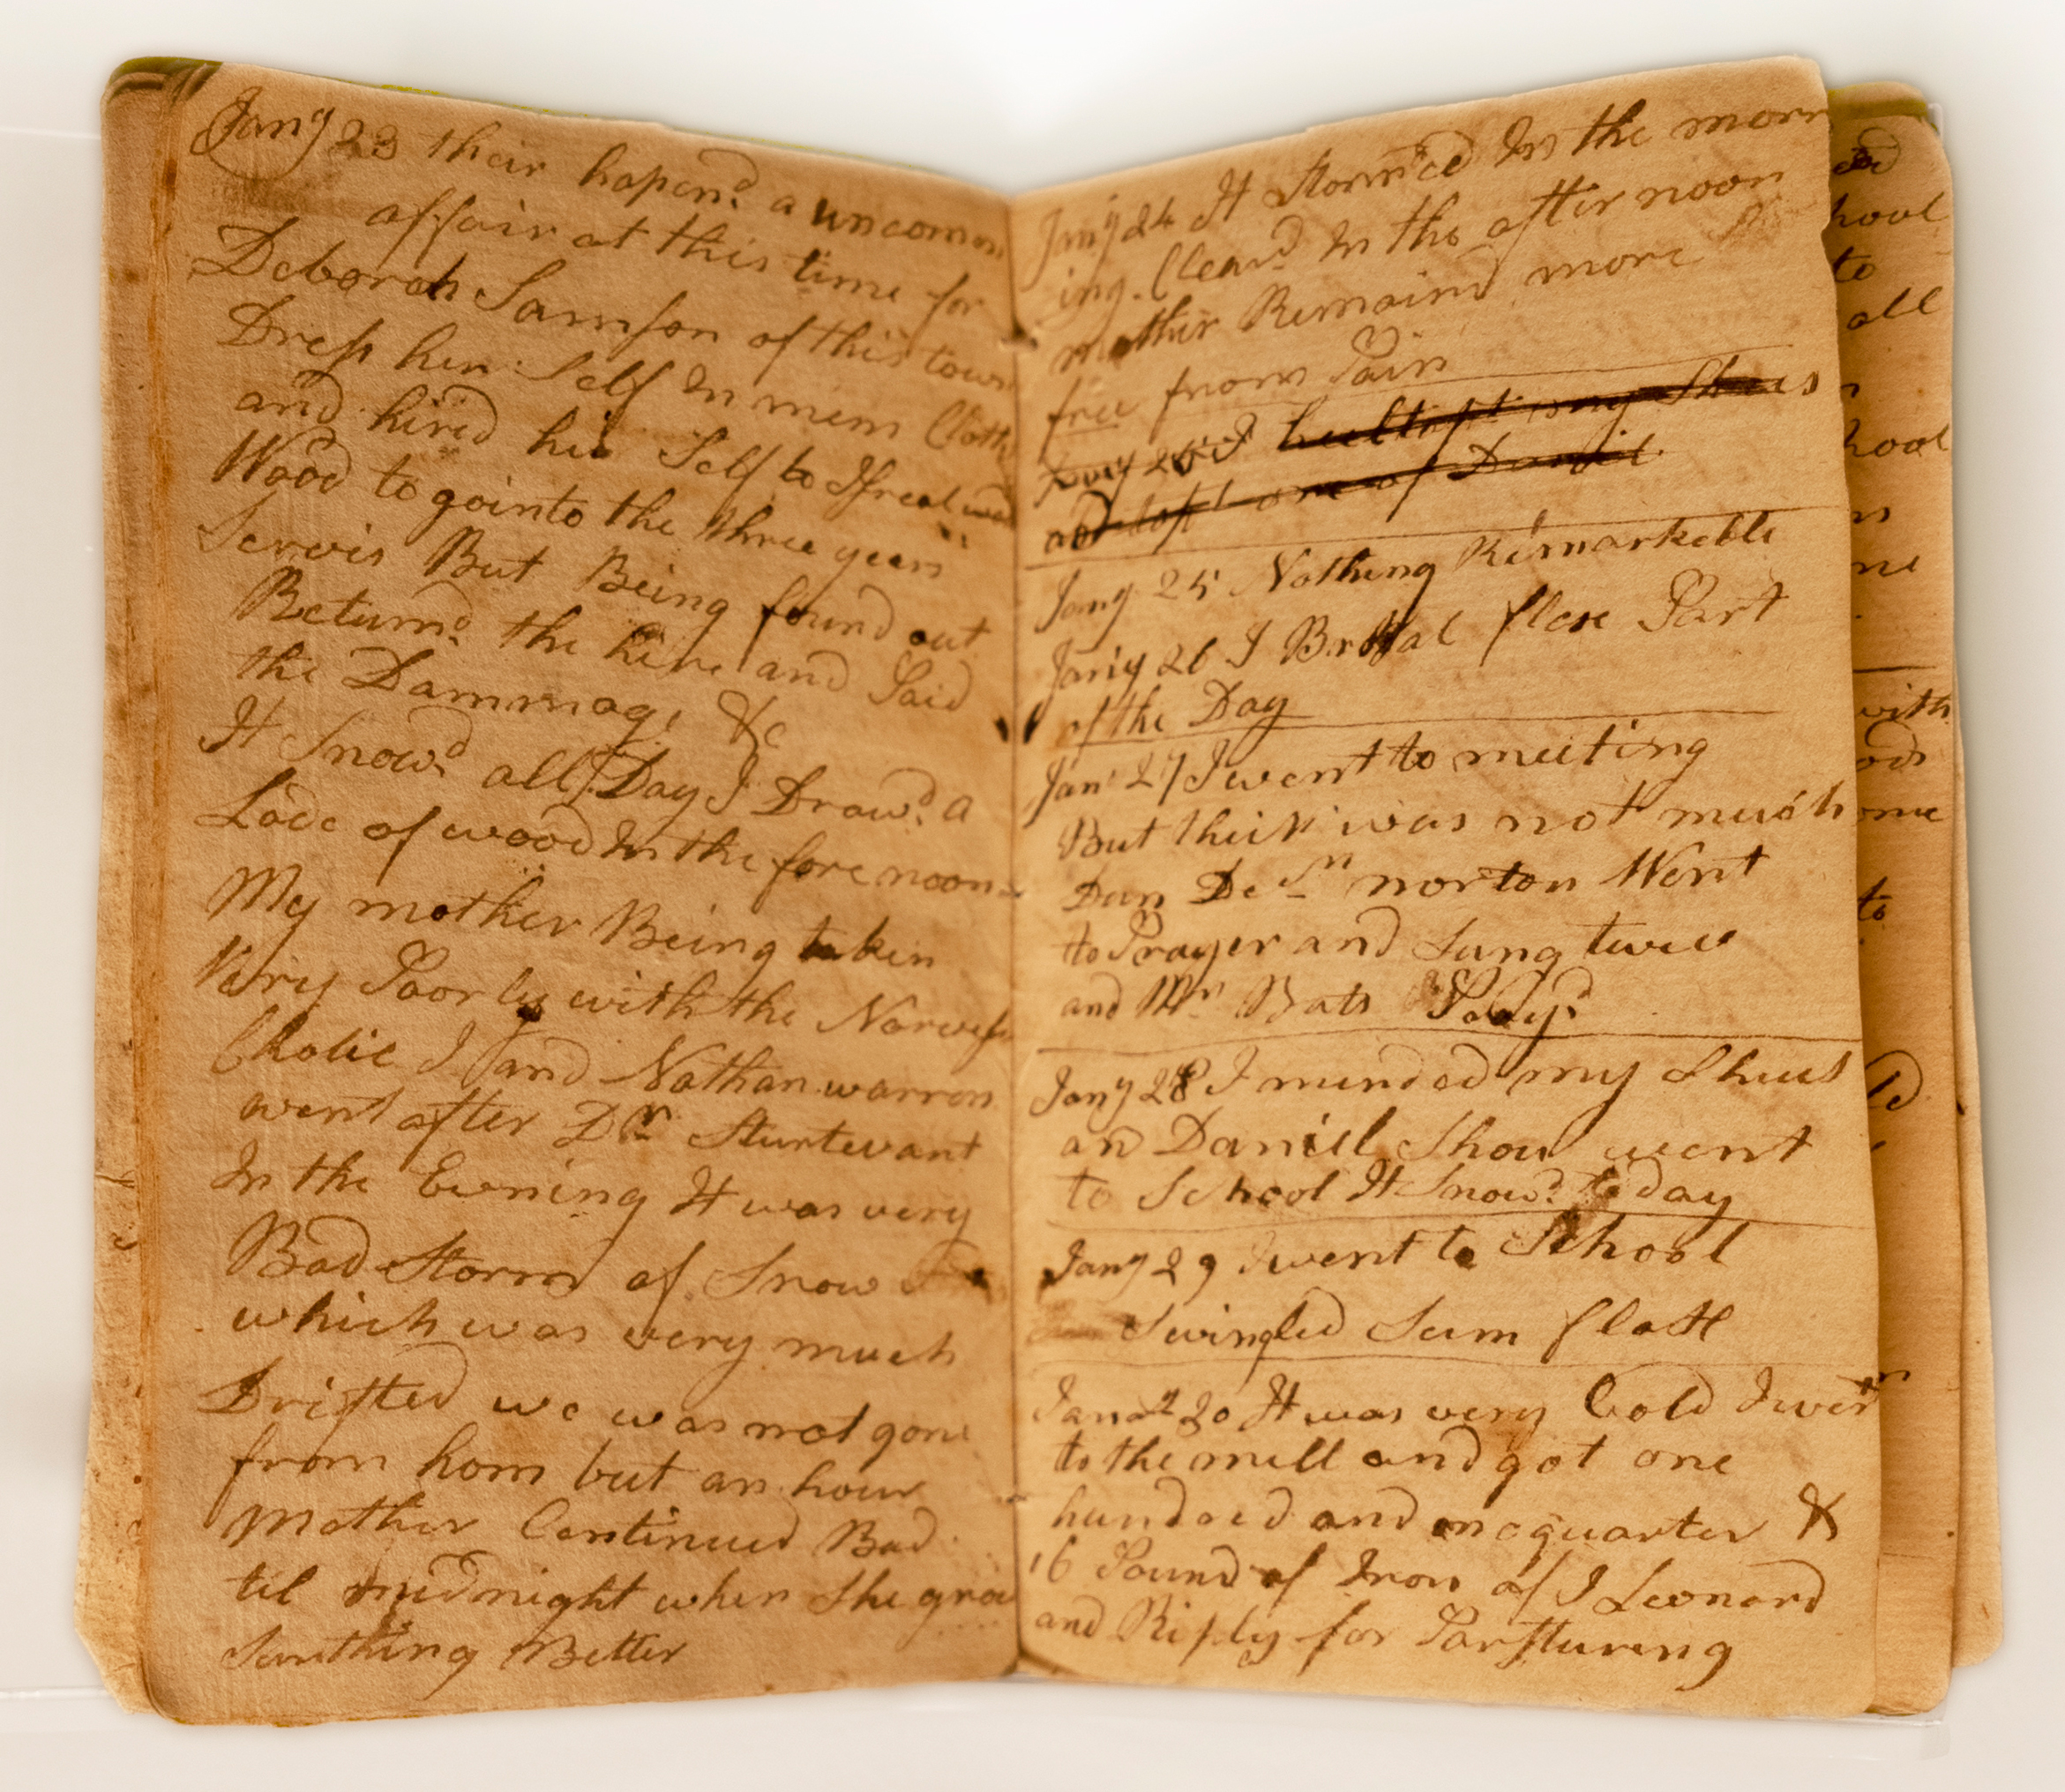 Jany 23 their hapend a uncommon
affair at this time for
Deborah Samson of this town
Dress her Self In mens Cloths
and hired his Self to Israel
Wood to go into the three years
Servis But Being found out
Returnd the hire and Paid
the Dammage &c
It Snowd all Day I Drawd a
Lode of wood In the fore noon
My mother Being taken
Very Poorly with the Narves
Cholic I and Nathan warren
went after Dr Sturtevant
In the Evening It was very
Bad Storm of Snow
which was very much
Drifted we was not gone
from hom but an hour
Mother Continued Bad
til midnight when She grew
Sumthing Better
Jany 24 It Stormed In the morn
ing. Cleard In the after noon
mother Remaind more
free from Pain
Jany 25 I my Shues
and lost one of Daniel
Jany 25 Nothing Remarkeble
Jany 26 I Flax Part
of the Day
Jany 27 I went to meeting
But their was not much
Dun Decn norton Went
to Prayer and Sung twice
and Mr Bats Prayd
Jany 28 I minded my Shues
and Daniel Shaw went
to School It Snowd to day
Jany 29 I went to School
Swingled Sum flax
Janay 30 It was very Cold I went
to the mill and got one
hundred and one quarter &
16 Pound of Iron of J Leonard
and Riply for Parsturing
ed
hool
to
all
hool
ne
with
ods
ome
to